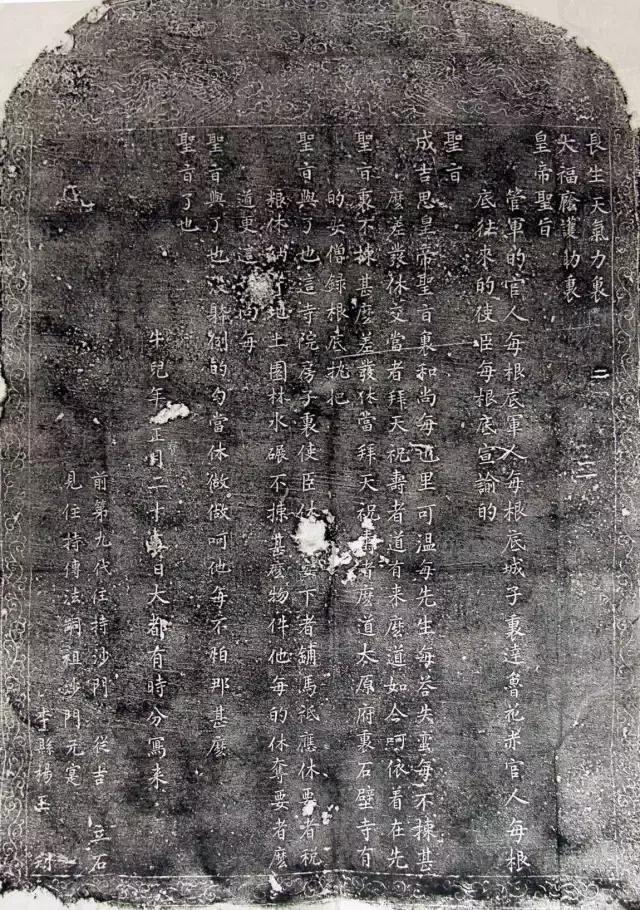 長生天氣力裏
大福廕護助裏
皇帝聖旨
管軍的官人每根底軍人每根底城子裏達魯花赤官人每根
底往來的使臣每根底宣諭的
聖旨
成吉思皇帝聖旨裏和尚每也里可温每先生每荅失蛮每不揀甚
麽差發休交當者拜天祝壽者道有来麽道如今呵依着在先
聖旨裏不揀甚麽差發休當拜天祝壽者麽道太原府裏石壁寺有
的安僧録根底執把
聖旨與了也這寺院房子裏使臣休安下者鋪馬祗應休要者稅
粮休納者地土園林水碾不揀甚麽物件他每的休奪要者麽
道更這和尚每
聖旨與了也没躰例的勾當休做做呵他每不怕那甚麽
聖旨了也
牛兒年正月二十日大都有時分寫来
前第九代住持沙門從吉立石
見住持傳法嗣祖沙門元
李縣楊玉